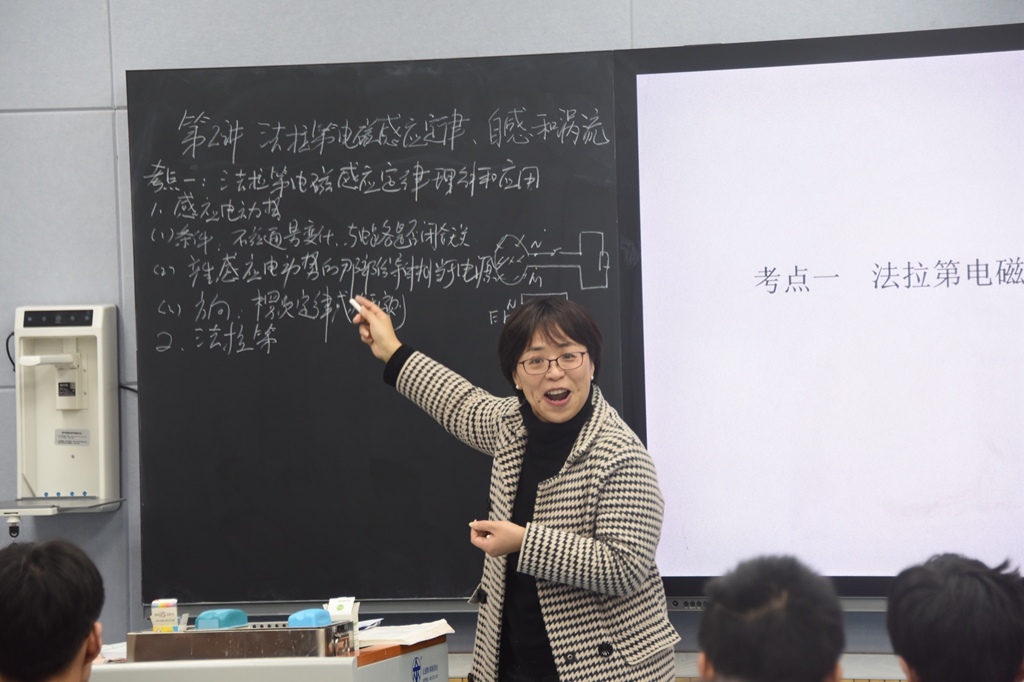 第2讲 法拉第电磁感应定律、自感和涡流
考点一：法拉第电磁感应定律理解和应用
1. 感应电动势
(1) 条件：不论通量变化，与电路是否闭合无关
(2) 产生感应电动势的那部分导体相当于电源
方向：楞次定律
2. 法拉第
N
N
考点一 法拉第电磁